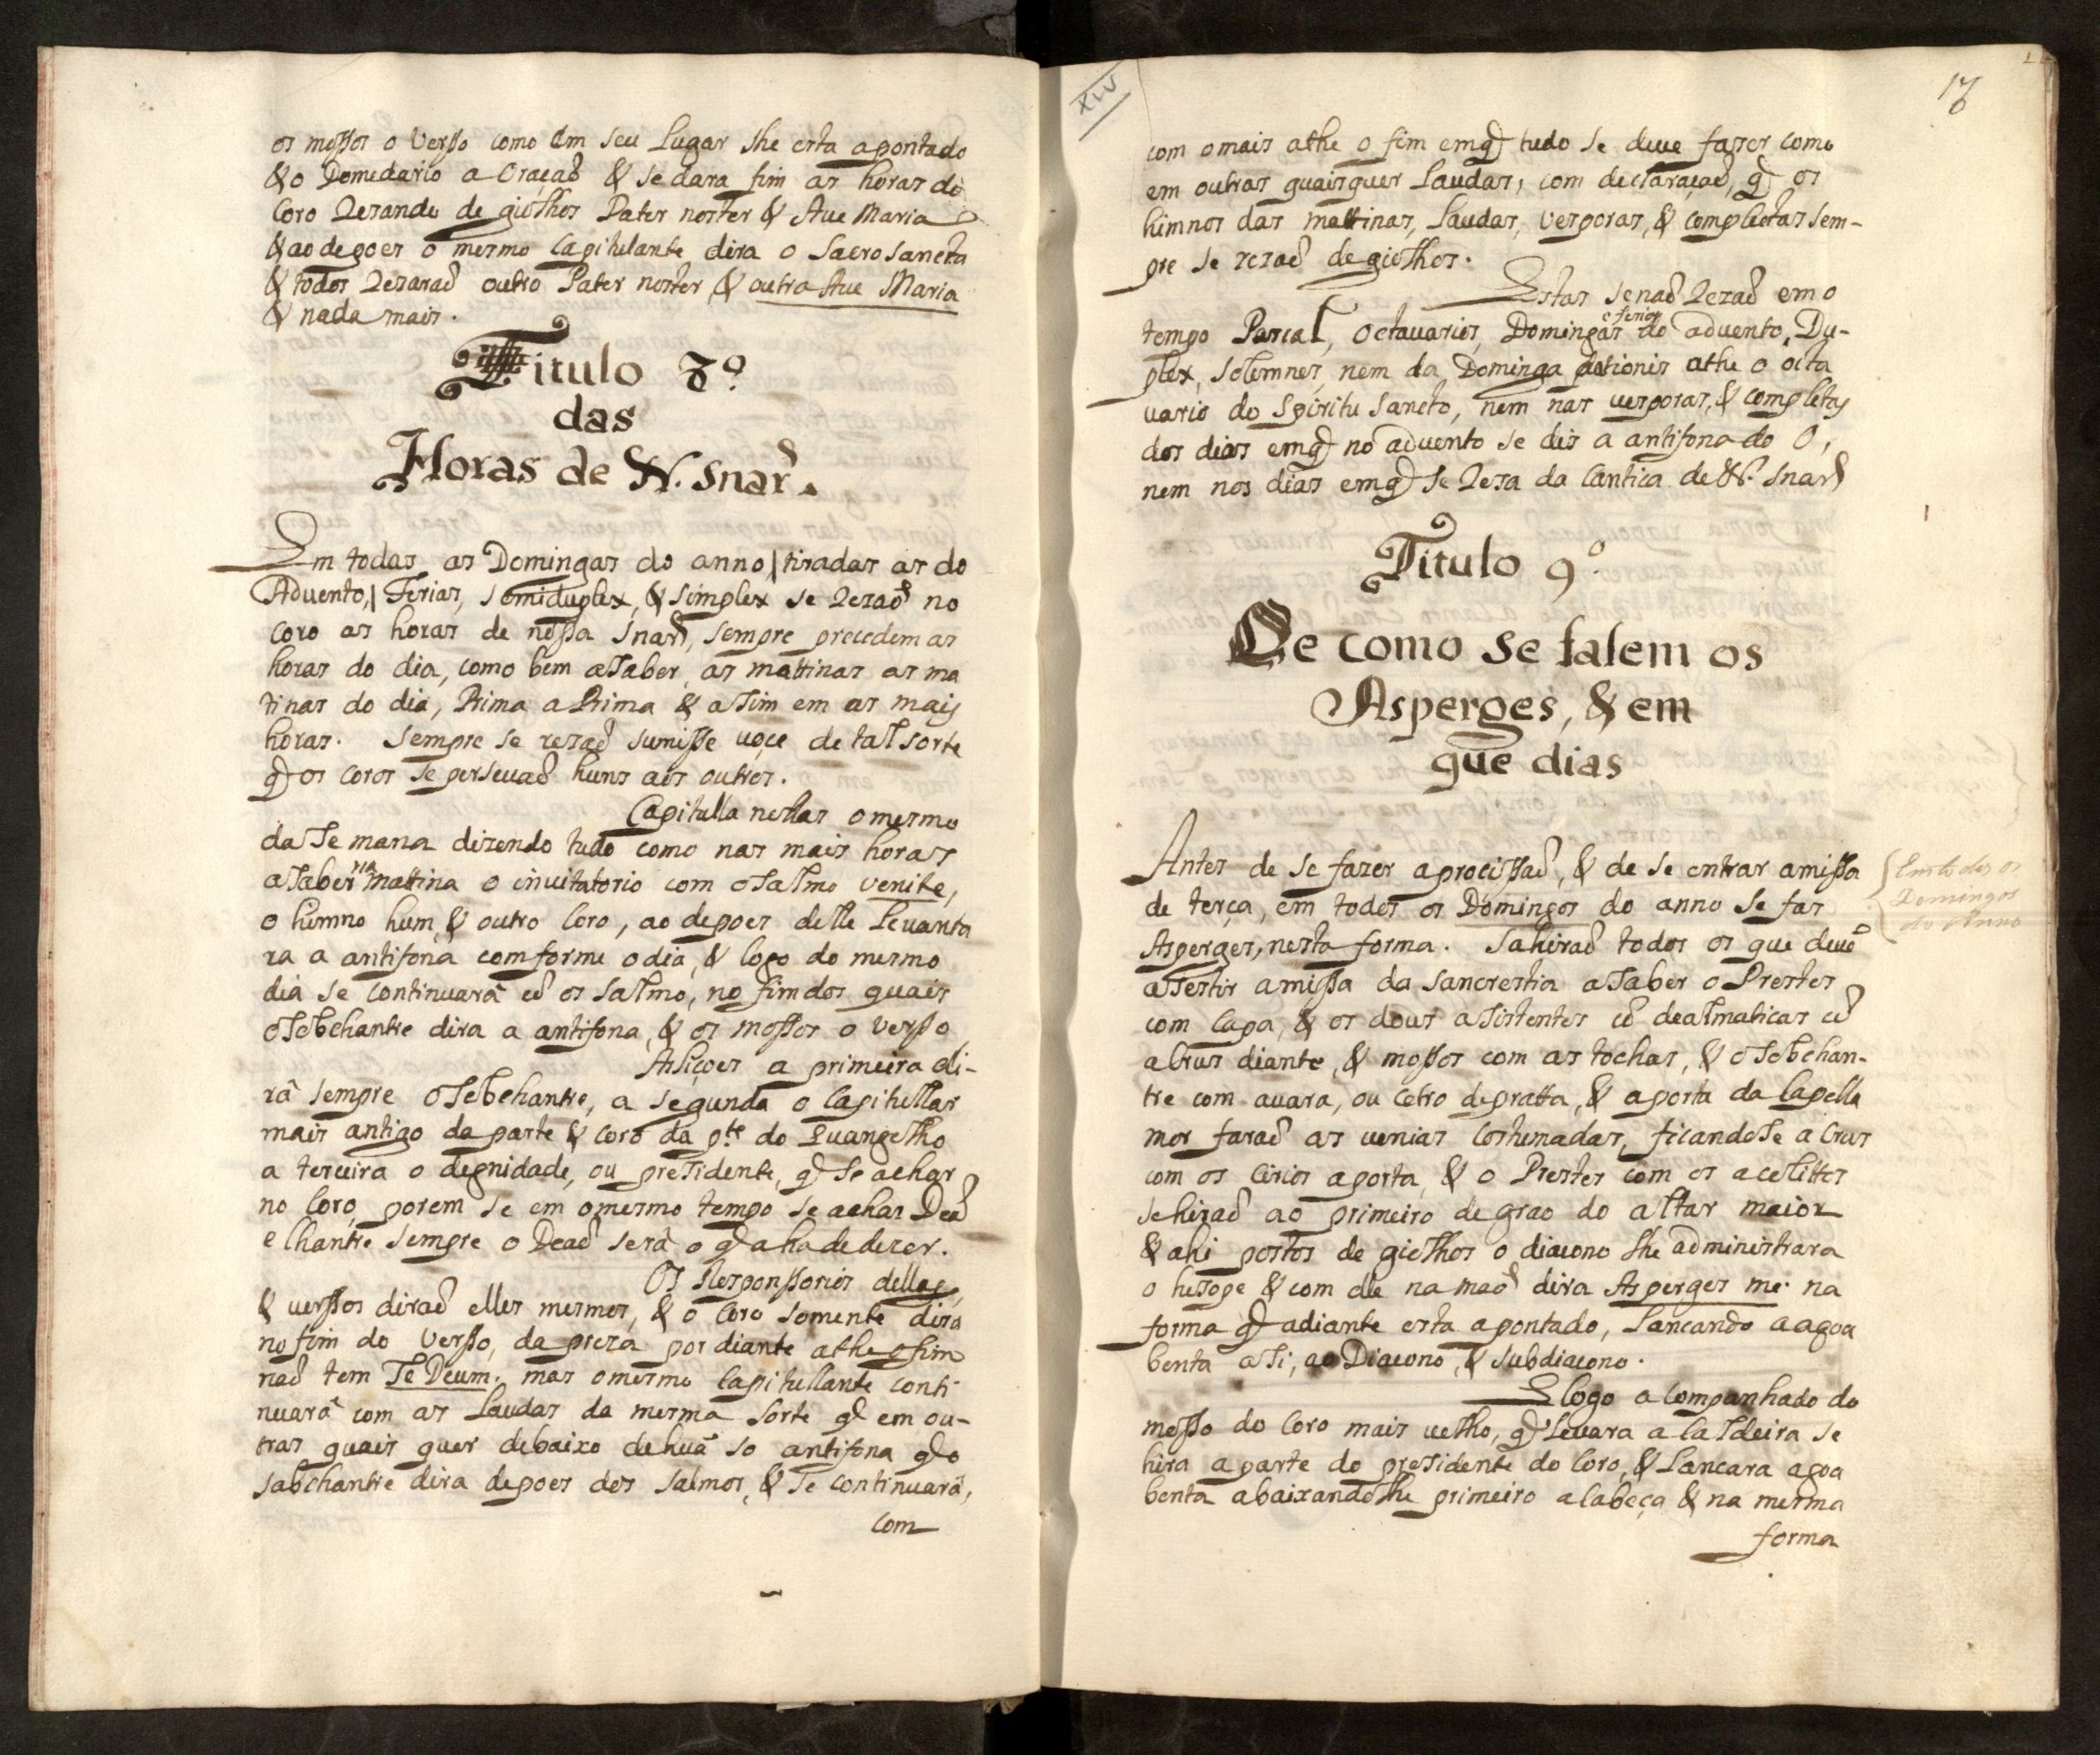 os mossos o Verso como Em seu Lugar lhe esta apontado
& o Domedario a Oraçaõ & se dara fim as horas do
Coro Rezando de giolhos Pater noster & Aue Maria
& ao depoes o mesmo Capitulante dira o Sacro sancta
& todos Rezaraõ outro Pater noster & outra Aue Maria
& nada mais.
Titulo 8º
das
Horas de N. Snar̃.
Em todas as Domingas do anno | tiradas as do
Aduento, | Ferias, semiduplex, & simplex se Rezaõ no
coro as horas de nossa Snar̃, sempre precedem as
horas do dia, como bem a saber, as mattinas as ma
tinas do dia, Prima a Prima & asim em as mais
horas. Sempre se rezaõ sumisse uoçe de tal sorte
q̃ os coros se perseuaõ huns aos outros.
Capitulla nestas o mesmo
da semana dizendo tudo como nas mais horas
a saber na Mattina o inuitatorio com o salmo venite,
o himno hum, & outro Coro, ao depoes delle Leuanta
ra a antifona comforme o dia, & logo do mesmo
dia se continuarâ cõ os salmo, no fim dos quais
o sobchantre dira a antifona, & os mossos o verso
As liçoes a primeira di-
râ sempre o sebchantre, a segunda o Capitullar
mais antigo da parte & coro da p.te do Euangelho
a terceira o degnidade, ou presidente, q̃ se achar
no Coro, porem se em o mesmo tempo se achar Deaõ
e Chantre sempre o Deaõ serâ o q̃ a ha de dezer.
Os Responssorios dellas,
& verssos diraõ elles mesmos, & o Coro somente dira
no fim do Verso, da preza por diante athe o fim
naõ tem Te Deum, mas o mesmo Capitullante conti
nuarâ com as Laudas da mesma sorte q̃ em ou-
tras quais quer debaixo de huã so antifona q̃ o
sabchantre dira depoes dos salmos, & se continuarâ,
com
XIV
18
com o mais athe o fim em q̃ tudo se deue fazer como
em outras quaisquer Laudas, com declaraçaõ, q̃ os
himnos das mattinas, Laudas, vesporas, & complectas sem-
pre se rezaõ de giolhos.
Estas se naõ Rezaõ em o
tempo Pascal, octauarios, Domingas e ferias do aduento, Du-
plex, solemnes, nem da Dominga pationis athe o oita
uario do Spiritu Sancto, nem nas vesporas, & completas
dos dias em q̃ no aduento se dis a antifona do O,
nem nos dias em q̃ se Reza da Cantica de N. Snar̃
Titulo 9º.
De como se fasem os
Asperges, & em
que dias
Antes de se fazer a procissaõ, & de se entrar a missa
de terça, em todos os Domingos do anno se fas
Asperges, nesta forma. Sahiraõ todos os que deuẽ
assestir a missa da sancrestia a saber o Prestes
com Capa, & os dous asistentes cõ dealmaticas cõ
a Crus diante, & mossos com as tochas, & o sobchan-
tre com a uara, ou Cetro de pratta, & a porta da Capella
mor faraõ as uenias Costumadas, ficandose a Crus
com os Cirios a porta, & o Prestes com os acolittos
se hiraõ ao primeiro degrao do altar maior
& ahi postos de giolhos o diacono lhe administrara
o hesope & com elle na maõ dira Asperges me. na
forma q̃ adiante esta apontado, Lancando a agoa
benta a si, ao Diacono, & subdiacono.
E logo a companhado do
mosso do Coro mais uelho, q̃ Leuara a Caldeira se
hira a parte do presidente do Coro, & Lancara agoa
benta abaixandolhe primeiro a Cabeça & na mesma
forma
Em todos os
Domingos
do Anno